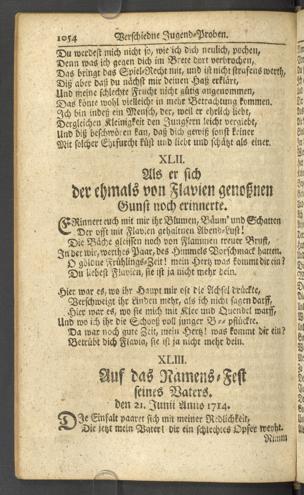 1054 Verschiedne Jugend-Proben.
Du werdest mich nicht so, wie ich dich neulich, pochen,
Denn was ich gegen dich im Brete dort verbrochen,
Das bringt das Spiel-Recht mit, und ist nicht strafens werth,
Diß aber daß du nächst mir deinen Haß erklärt,
Und meine schlechte Frucht nicht gütig angenommen,
Das könte wohl vielleicht in mehr Betrachtung kommen.
Ich bin indeß ein Mensch, der, weil er ehrlich liebt,
Dergleichen Kleinigkeit den Jungfern leicht vergiebt,
Und diß beschwören kan, daß dich gewiß sonst keiner
Mit solcher Ehrfurcht küst und liebt und schätzt als einer.
XLII.
Als er sich
der ehmals von Flavien genoßnen
Gunst noch erinnerte.
ERinnert euch mit mir ihr Blumen, Bäum' und Schatten
Der offt mit Flavien gehaltnen Abend-Lust!
Die Bäche gleissen noch von Flammen treuer Brust,
In der wir, werthes Paar, des Himmels Vorschmack hatten.
O göldne Frühlings-Zeit! mein Hertz was kommt dir ein?
Du liebest Flavien, sie ist ja nicht mehr dein.
Hier war es, wo ihr Haupt mir oft die Achsel drückte,
Verschweigt ihr Linden mehr, als ich nicht sagen darff,
Hier war es, wo sie mich mit Klee und Quendel warff,
Und wo ich ihr die Schooß voll junger B-- pflückte.
Da war noch gute Zeit, mein Hertz! was kommt dir ein?
Betrübt dich Flavia, sie ist ja nicht mehr dein.
XLIII.
Auf das Namens-Fest
seines Vaters.
den 21. Junii Anno 1714.
DIe Einfalt paaret sich mit meiner Redlichkeit,
Die jetzt mein Vater! dir ein schlechtes Opfer weyht.
Nimm